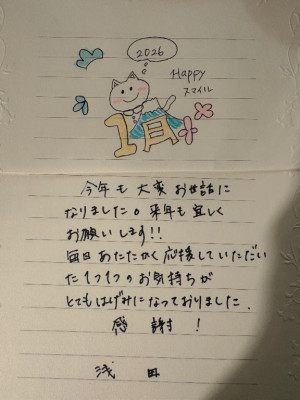 2026
Happy
スマイル
1月
今年も大変お世話に
なりました。来年も宜しく
お願いします!!
毎日あたたかく応援していただい
た1つ1つのお気持ちが
とてもはげみになっておりました.
感謝!
浅田